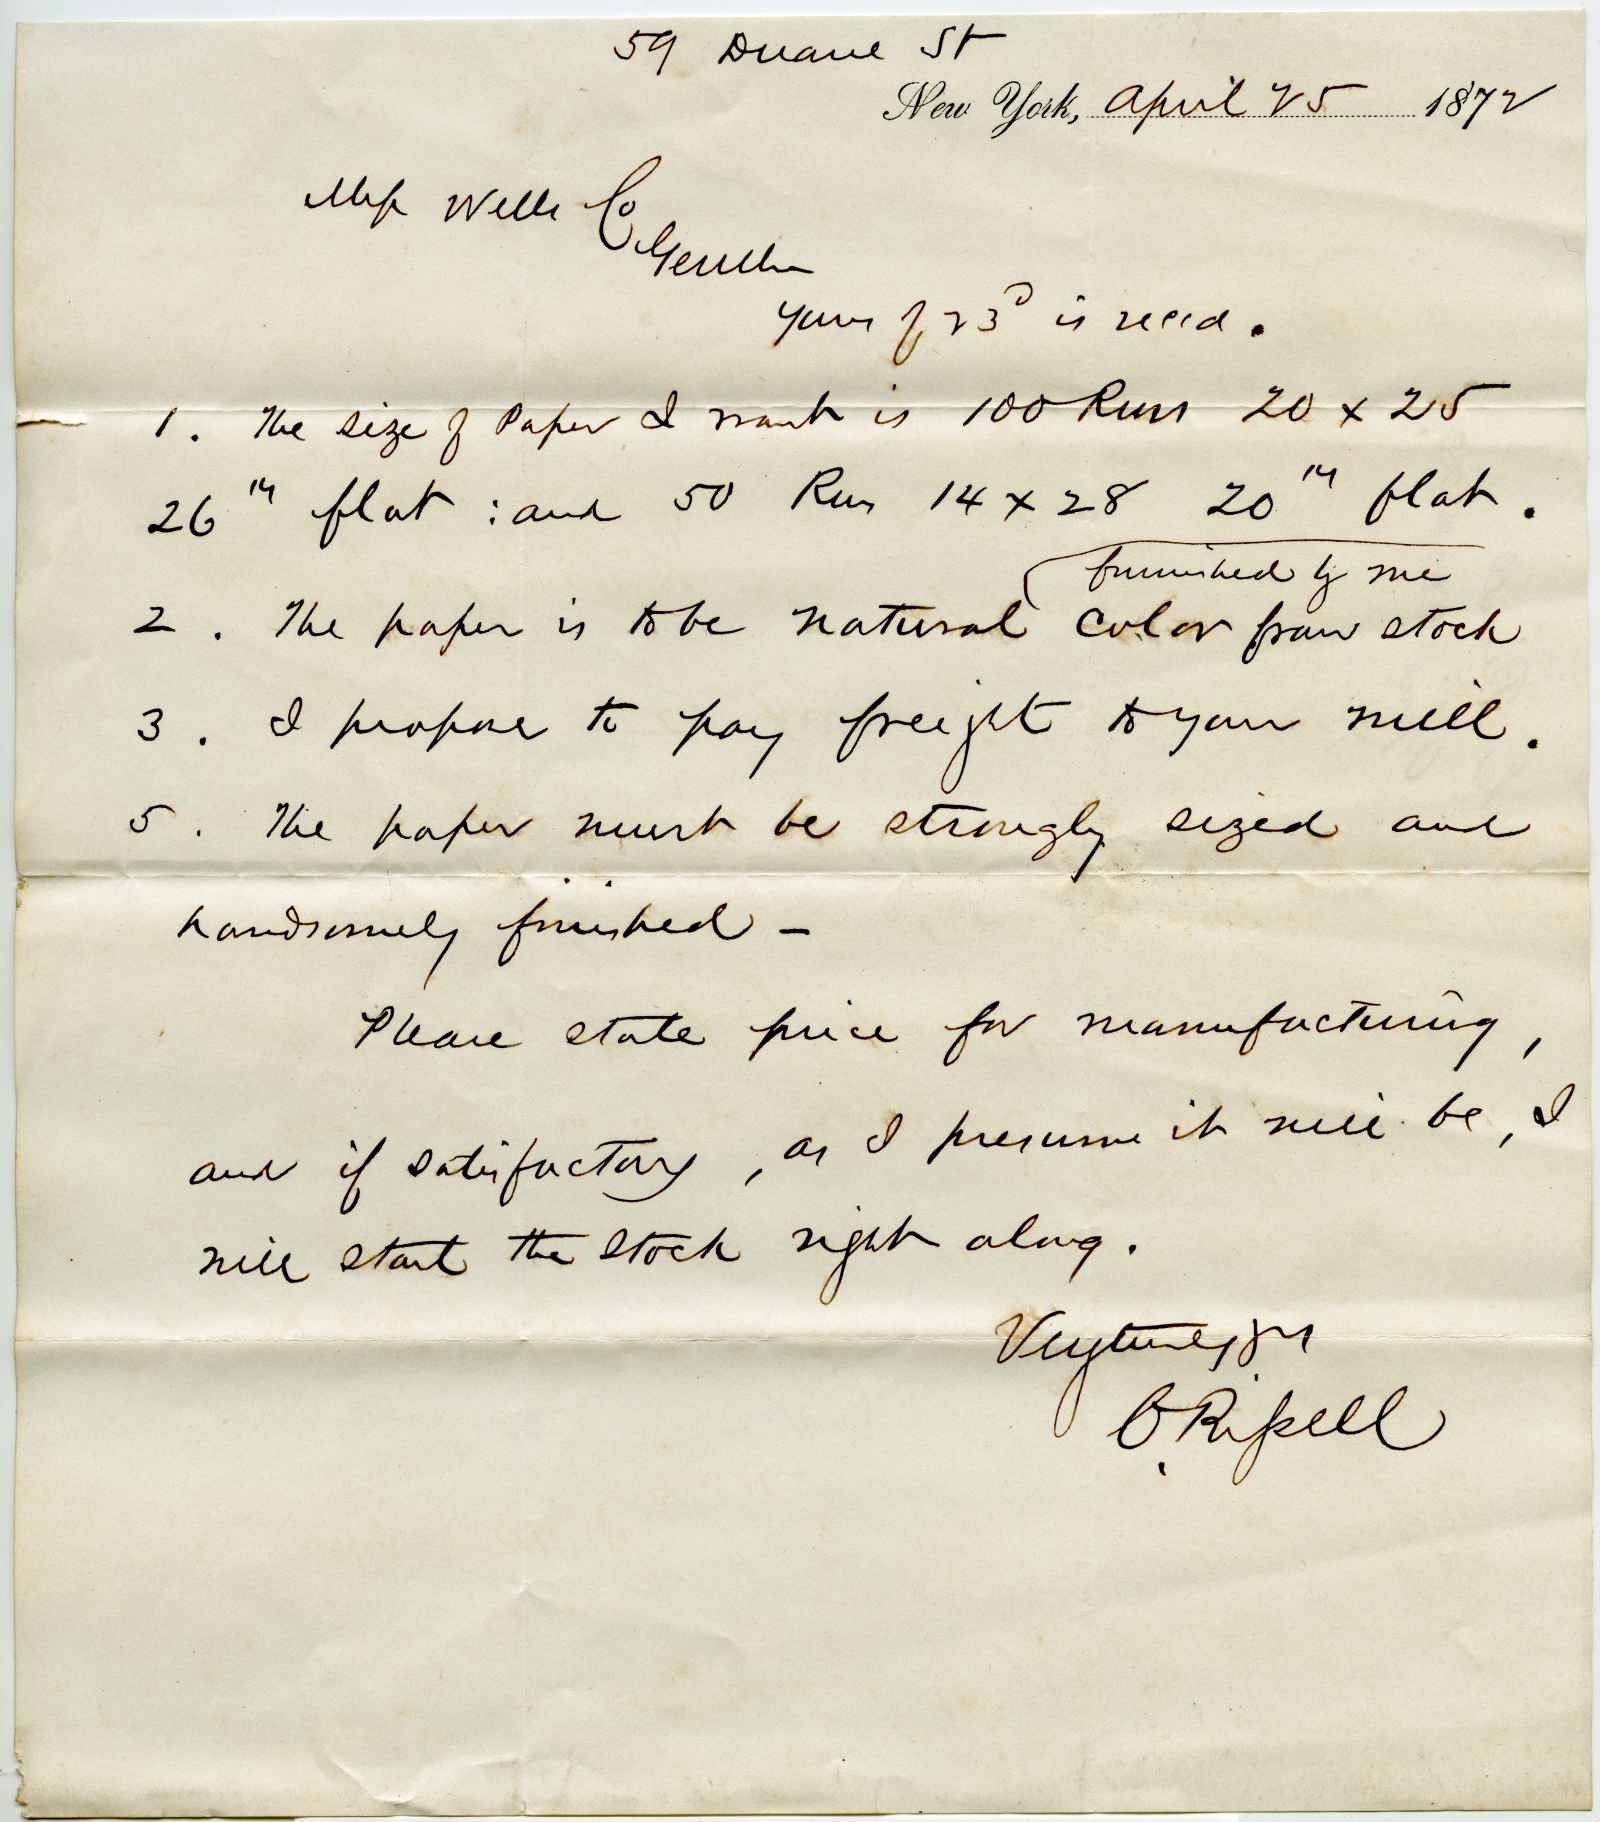 59 Duane St
New York, April 25 1872
Mess Wells Co
Gentlm
Yours of 23d is recd.
1. The size of Paper I want is 100 Rms 20 x 25
26 lb flat : and 50 Rms 14 x 28 20 lb flat.
furnished by me
2. The paper is to be natural color from stock
3. I propose to pay freight to your mill.
5. The paper must be strongly sized and
handsomely finished -
Please state price for manufacturing,
and if satisfactory, as I presume it will be, I
will start the stock right along.
Very truly yrs
Rissell